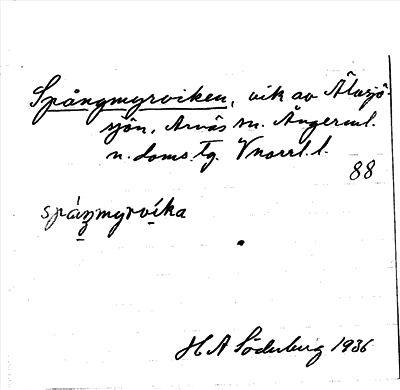 Spångmyrviken, vik av Älvsjö-
sjön, Arnäs sn. Ångerml.
n. doms. tg. Vnorrl. l.
88
spáŋmyrvíka
H A Söderberg 1936